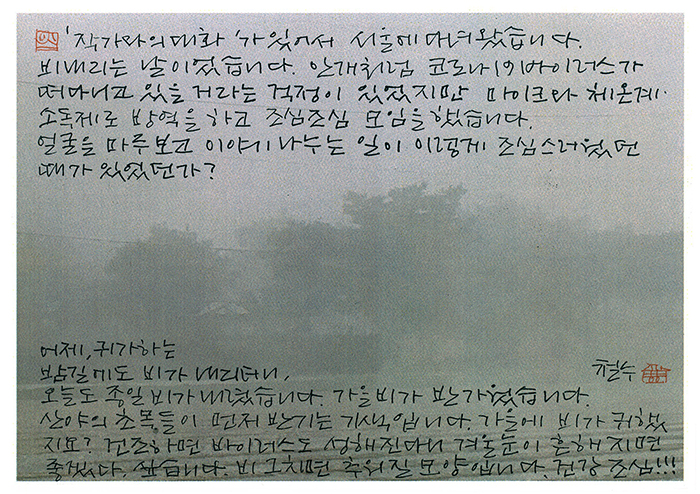 '작가와의 대화'가 있어서 서울에 다녀왔습니다.
비내리는 날이었습니다. 안개처럼 코로나19바이러스가
떠다니고 있을 거라는 걱정이 있었지만 마이크와 체온계·
소독제로 방역을 하고 조심조심 모임을 했습니다.
얼굴을 마주보고 이야기 나누는 일이 이렇게 조심스러웠던
때가 있었던가?
어제, 귀가하는
밤길에도 비가 내리더니,
오늘도 종일 비가 내렸습니다. 가을비가 반가웠습니다.
철수
산야의 초목들이 먼저 반기는 기색입니다. 가을에 비가 귀했
지요? 건조하면 바이러스도 성해진다니 겨울눈이 흔해지면
좋겠다. 싶습니다. 비 그치면 추워질 모양입니다. 건강 조심!!!